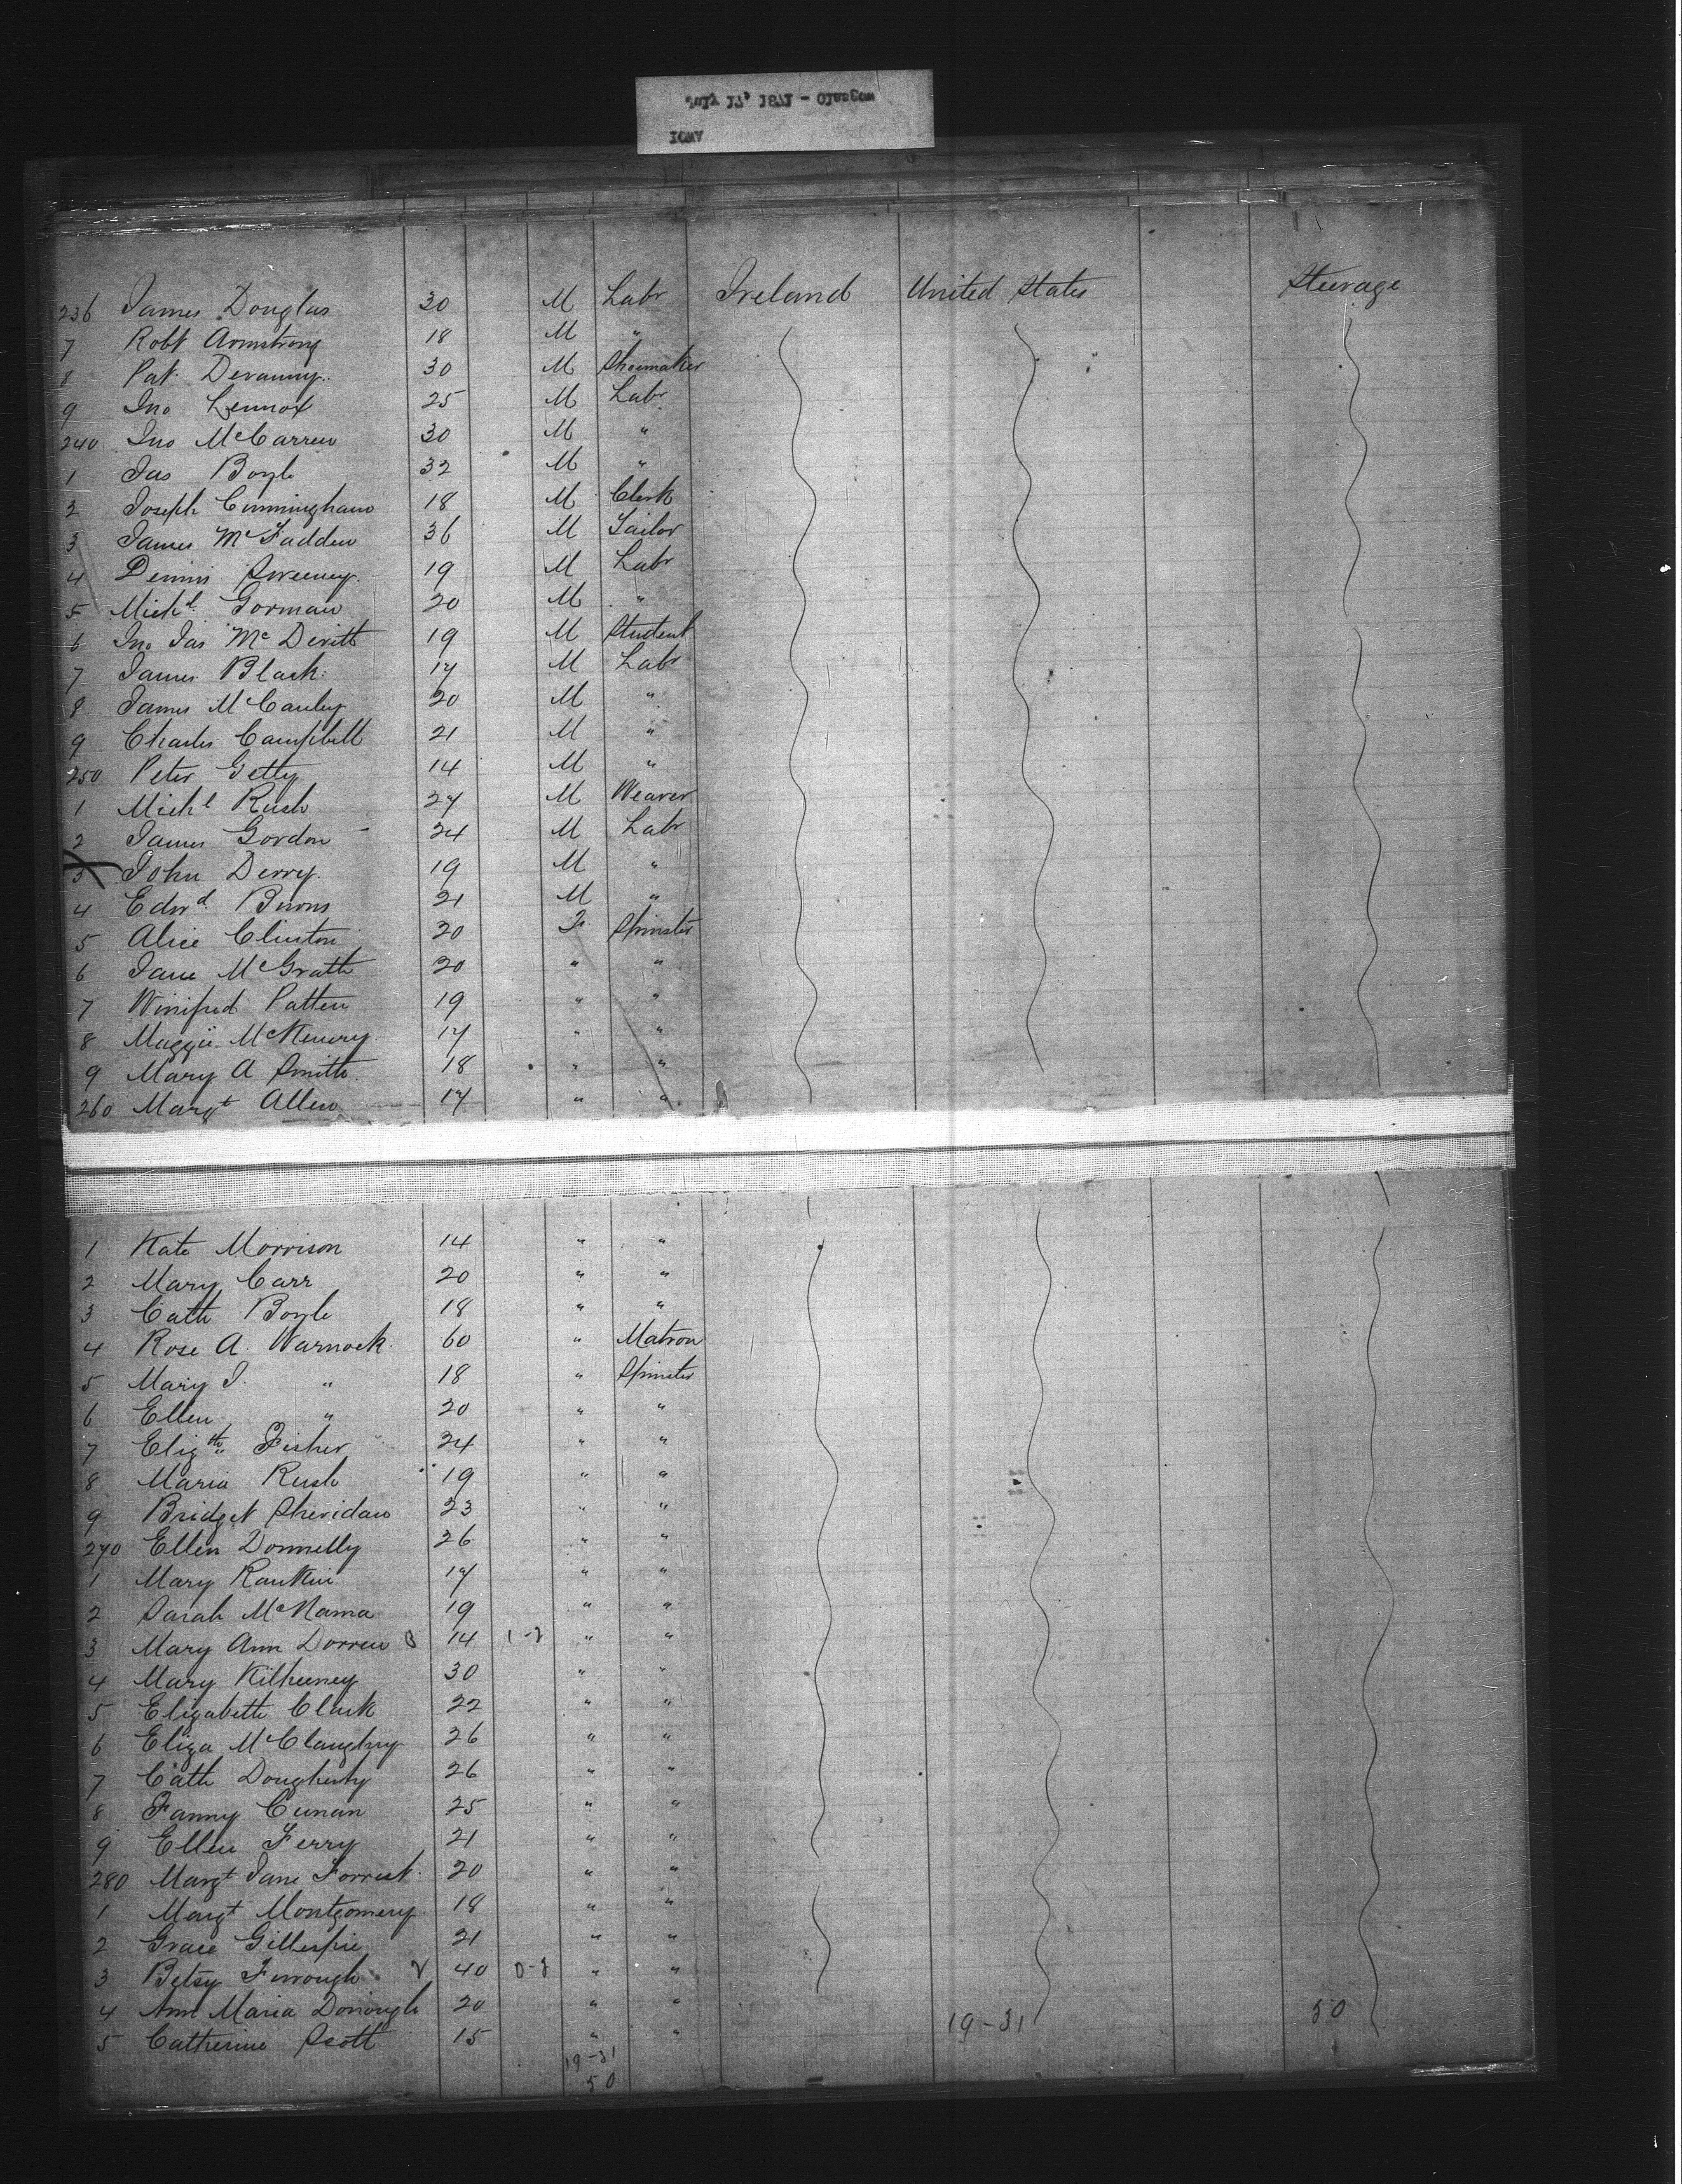 IOWA
236 James Douglas 30 M Labr Ireland United States Steerage
7 Robt Armstrong 18 M "
8 Pat Devanny 30 M Shoemaker
9 Jno Lennox 25 M Labr
240 Jno McCarren 30 M "
1 Jas Boyle 32 M "
2 Joseph Cunningham 18 M Clerk
3 James McFadden 36 M Tailor
4 Dennis Sweeney 19 M Labr
5 Michl Gorman 20 M "
6 Jno Jas McDevitt 19 M Student
7 James Black 17 M Labr
8 James McCauley 20 M "
9 Charles Campbell 21 M "
250 Peter Getty 14 M "
1 Michl Rush 27 M Weaver
2 James Gordon 24 M Labr
3 John Derry 19 M "
4 Edwd Burns 21 M "
5 Alice Clinton 20 F Spinster
6 Jane McGrath 20 " "
7 Winifred Patten 19 " "
8 Maggie 17 " "
9 Mary A Smith 18 " "
260 Margt Allen 17 " "
1 Kate Morrison 14 " "
2 Mary Carr 20 " "
3 Cath Boyle 18 " "
4 Rose A. Warnock 60 " Matron
5 Mary J. " 18 " Spinster
6 Ellen " 20 " "
7 Elizth Fisher 24 " "
8 Maria Rush 19 " "
9 Bridget Sheridan 23 " "
270 Ellen Donnelly 26 " "
1 Mary Rankin 17 " "
2 Sarah McNama 19 " "
3 Mary Ann Dorren 14 " "
4 Mary Kilheeney 30 " "
5 Elizabeth Clark 22 " "
6 Eliza McClaughry 26 " "
7 Cath Dougherty 26 " "
8 Fanny Cunan 25 " "
9 Ellen Ferry 21 " "
280 Margt Jane Forrest 20 " "
1 Margt Montgomery 18 " "
2 Grace Gillespie 21 " "
3 Betsy 40 " "
4 Ann Maria Donough 20 " "
5 Catherine Scott 15 " " 19-31 50
19-31
50